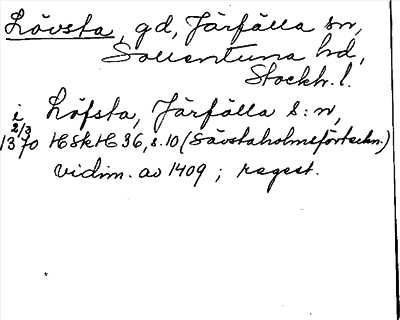 Lövsta, gd, Järfälla sn,
Sollentuna hd,
Stockh. l.
i Löfsta, Järfälla s:n,
2/3
1370 HSkH 36, s. 10 (Sävstaholmsförteckn.)
vidim. av 1409 ; regest.